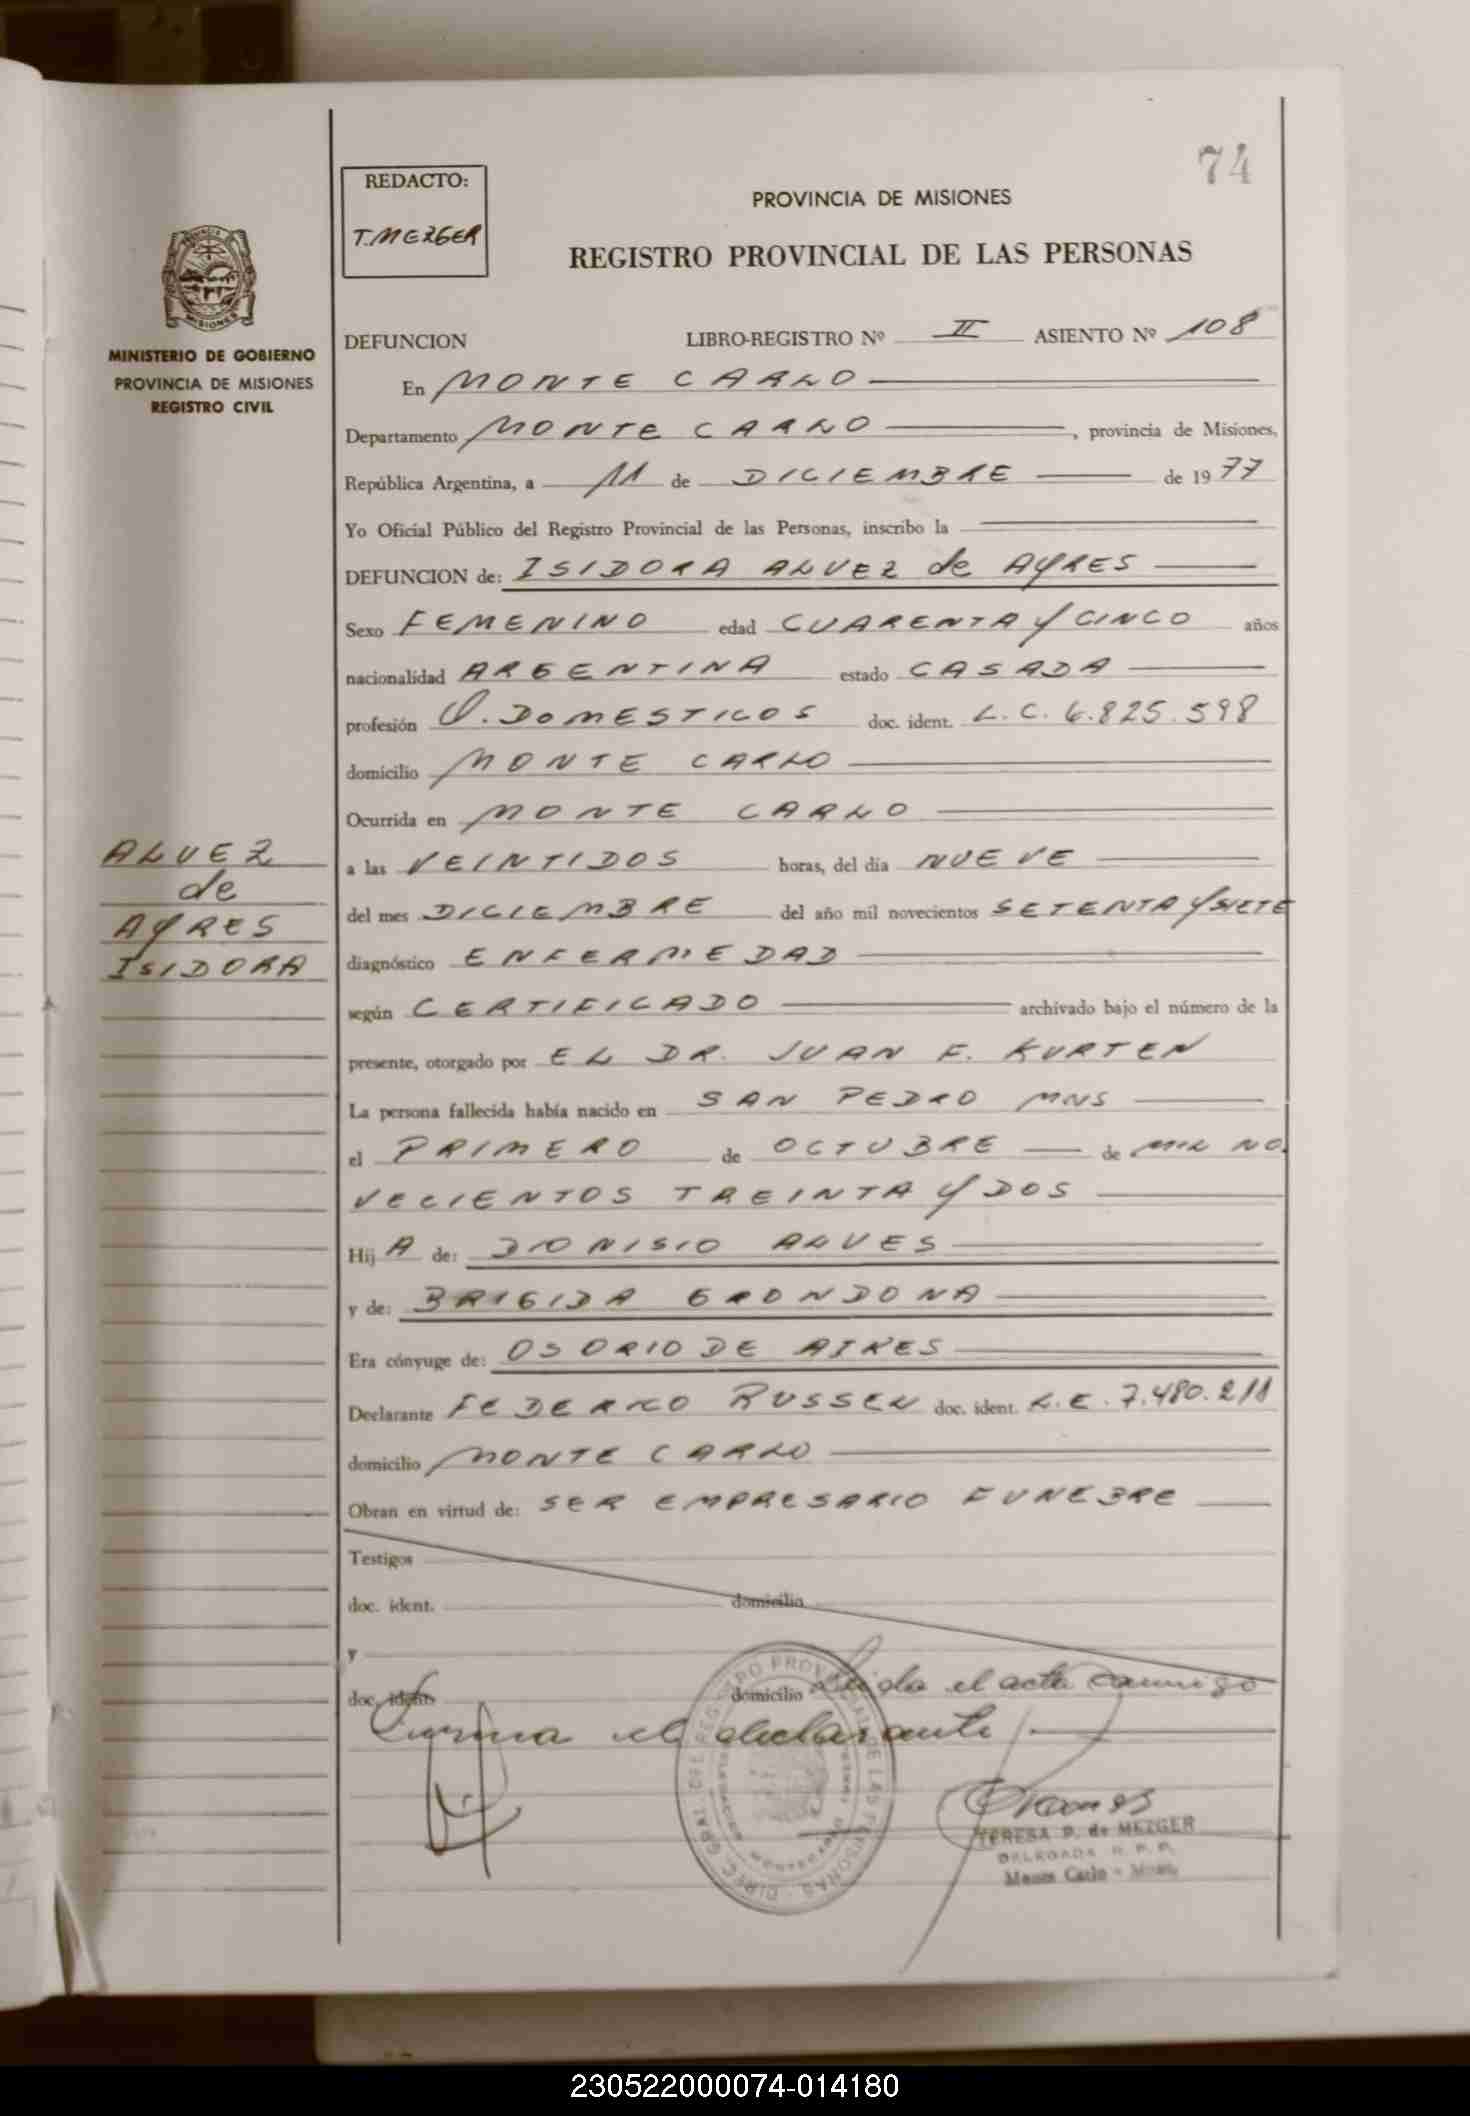 74
REDACTO:
T. MEZGER
PROVINCIA DE MISIONES
REGISTRO PROVINCIAL DE LAS PERSONAS
MISIONES
MINISTERIO DE GOBIERNO
PROVINCIA DE MISIONES
REGISTRO CIVIL
DEFUNCION LIBRO-REGISTRO Nº II ASIENTO Nº 108
En MONTE CARLO
Departamento MONTE CARLO, provincia de Misiones,
República Argentina, a 11 de DICIEMBRE de 1977
Yo Oficial Público del Registro Provincial de las Personas, inscribo la
DEFUNCION de: ISIDORA ALVEZ de AYRES
Sexo FEMENINO edad CUARENTA Y CINCO años
nacionalidad ARGENTINA estado CASADA
profesión Q. DOMESTICOS doc. ident. L. C. 6.825.598
domicilio MONTE CARLO
Ocurrida en MONTE CARLO
a las VEINTIDOS horas, del día NUEVE
del mes DICIEMBRE del año mil novecientos SETENTA Y SIETE
diagnóstico ENFERMEDAD
según CERTIFICADO archivado bajo el número de la
presente, otorgado por EL DR. JUAN F. KURTEN
La persona fallecida había nacido en SAN PEDRO MNS
el PRIMERO de OCTUBRE de MIL NO.
VECIENTOS TREINTA Y DOS
Hij A de: DIONISIO ALVES
y de: BRIGIDA GRONDONA
Era cónyuge de: OSORIO DE AIRES
Declarante FEDERICO RUSSEL doc. ident. L. E. 7.480.211
domicilio MONTE CARLO
Obran en virtud de: SER EMPRESARIO FUNEBRE
Testigos
doc. ident. domicilio
y
doc. ident. domicilio Leida el acta conmigo
Firma el declarante
TERESA P. de MEZGER
DELEGADA R. P. P.
Monte Carlo - Mnes.
ALVEZ
de
AYRES
ISIDORA
230522000074-014180